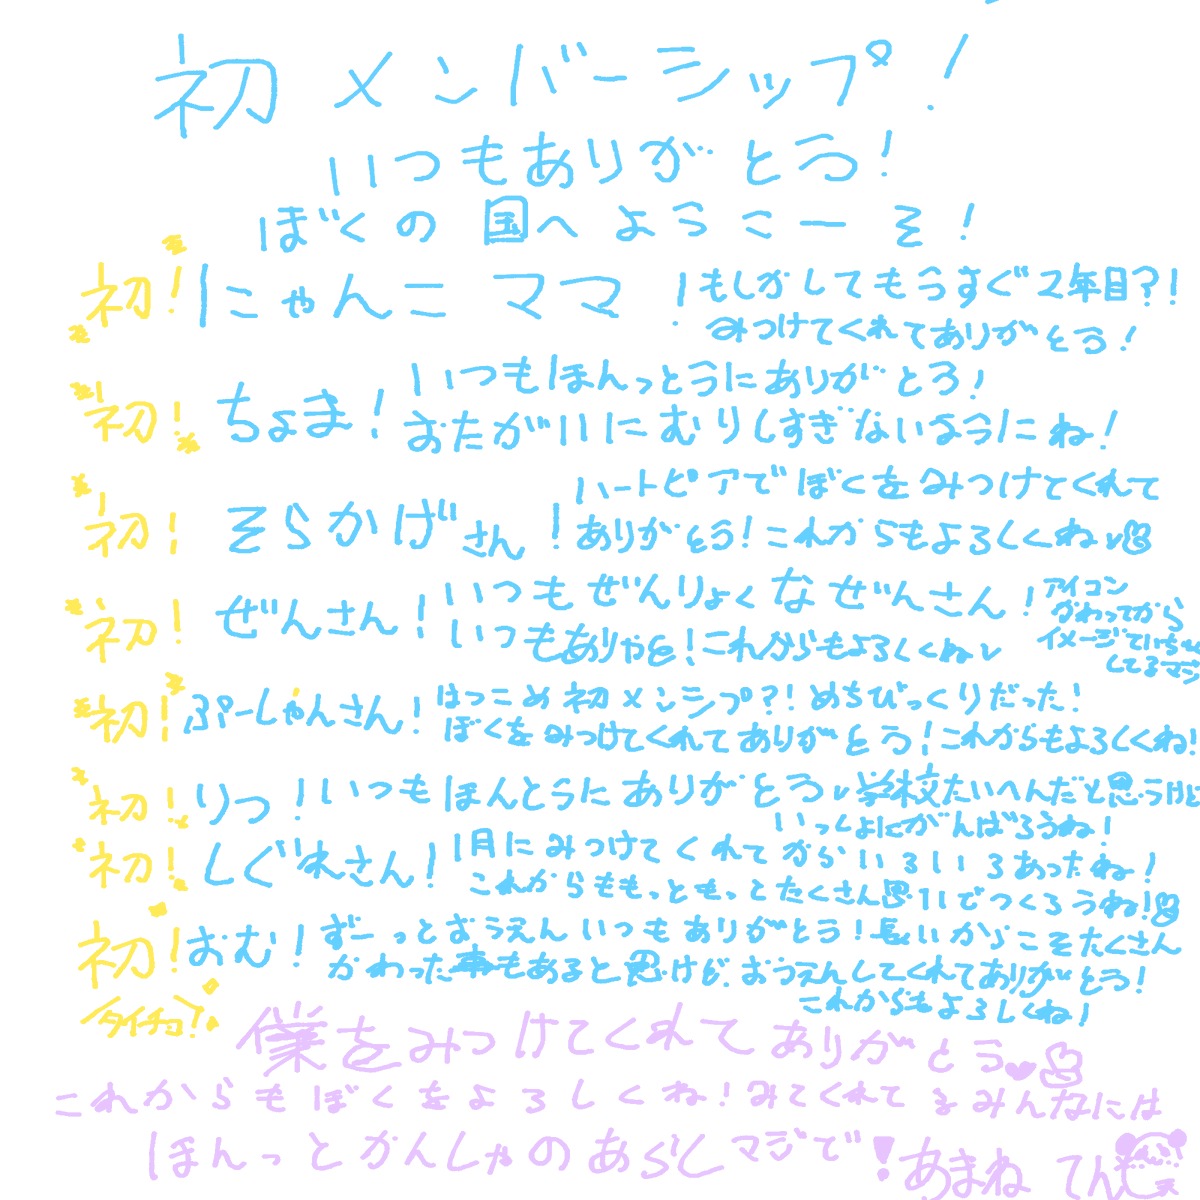 初メンバーシップ!
いつもありがとう!
ぼくの国へようこーそ!
初!にゃんこママ!もしかしてもうすぐ2年目?!
みつけてくれてありがとう!
初!ちょま!いつもほんっとうにありがとう!
おたがいにむりしすぎないようにね!
初!そらかげさん!ハートピアでぼくをみつけてくれて
ありがとう!これからもよろしくね
初!ぜんさん!いつもぜんりょくなぜんさん!
いつもありがと!これからもよろしくね
アイコン
かわってから
イメージていちゃく
してるマジ
初!ぷーしゃんさん!はつこめ初メンシプ?!めちびっくりだった!
ぼくをみつけてくれてありがとう!これからもよろしくね!
初!りつ!いつもほんとうにありがとう学校たいへんだと思うけど
いっしょにがんばろうね!
初!しぐれさん!1月にみつけてくれてからいろいろあったね!
これからももっともっとたくさん思いでつくろうね!
初!おむ!ずーっとおうえんいつもありがとう!長いからこそたくさん
かわった事もあると思うけど、おうえんしてくれてありがとう!
これからもよろしくね!
タイチョー!
僕をみつけてくれてありがとう
これからもぼくをよろしくね!みてくれてるみんなには
ほんっとかんしゃのあらしマジで!あまねてん